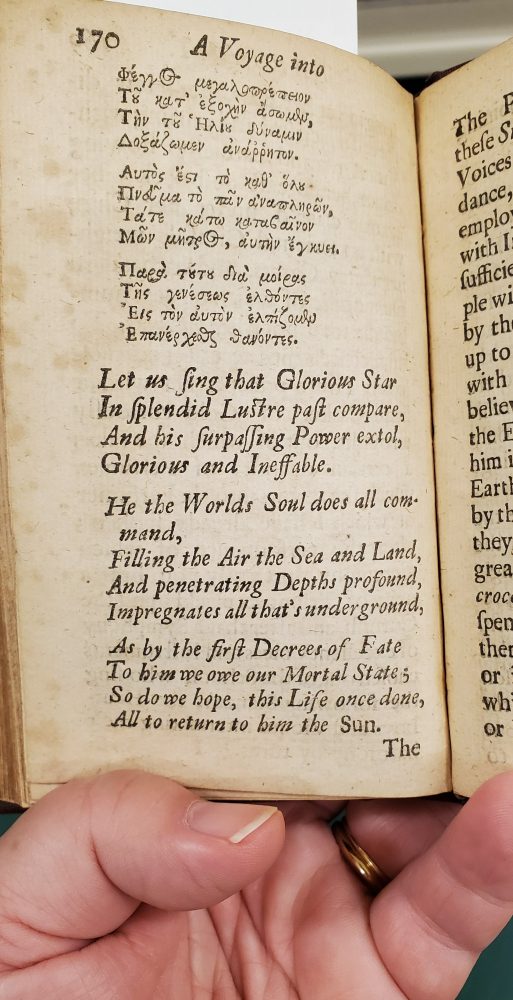 170 A Voyage into
Φέγγος μεγαλοπρέπειον
Τȣ͂ κατ' ἐξοχὴν ἀσωμϑμ,
Τὴν τȣ͂ Ἡλίȣ δύναμιν
Δοξάζωμεν ἀνάῤῥητον.
Αυτὸς ἔςι τὸ καθ' ὅλȣ
Πνεῦμα τὸ πᾶν ἀναπληρῶν,
Τάτε κάτω καταβαῖνον
Μῶν μῆτρος, αὐτὴν ἔγκυει.
Παρὰ τȣ́τȣ διὰ μοίρας
Τῆς γενέσεως ἐλθόντες
Εἰς τὸν αυτὸν ἐλπίζομϑμ
Ἐπανέρχεσθς θανόντες.
Let us ſing that Glorious Star
In ſplendid Luſtre paſt compare,
And his ſurpaſſing Power extol,
Glorious and Ineffable.
He the Worlds Soul does all com-
mand,
Filling the Air the Sea and Land,
And penetrating Depths profound,
Impregnates all that's underground,
As by the firſt Decrees of Fate
To him we owe our Mortal State;
So do we hope, this Life once done,
All to return to him the Sun.
The
The P
theſe S
Voices
dance,
employ
with I
ſufficie
ple wi
by the
up to
with
believ
the E
him i
Earth
by th
they
grea
croco
ſpen
then
or
whi
or